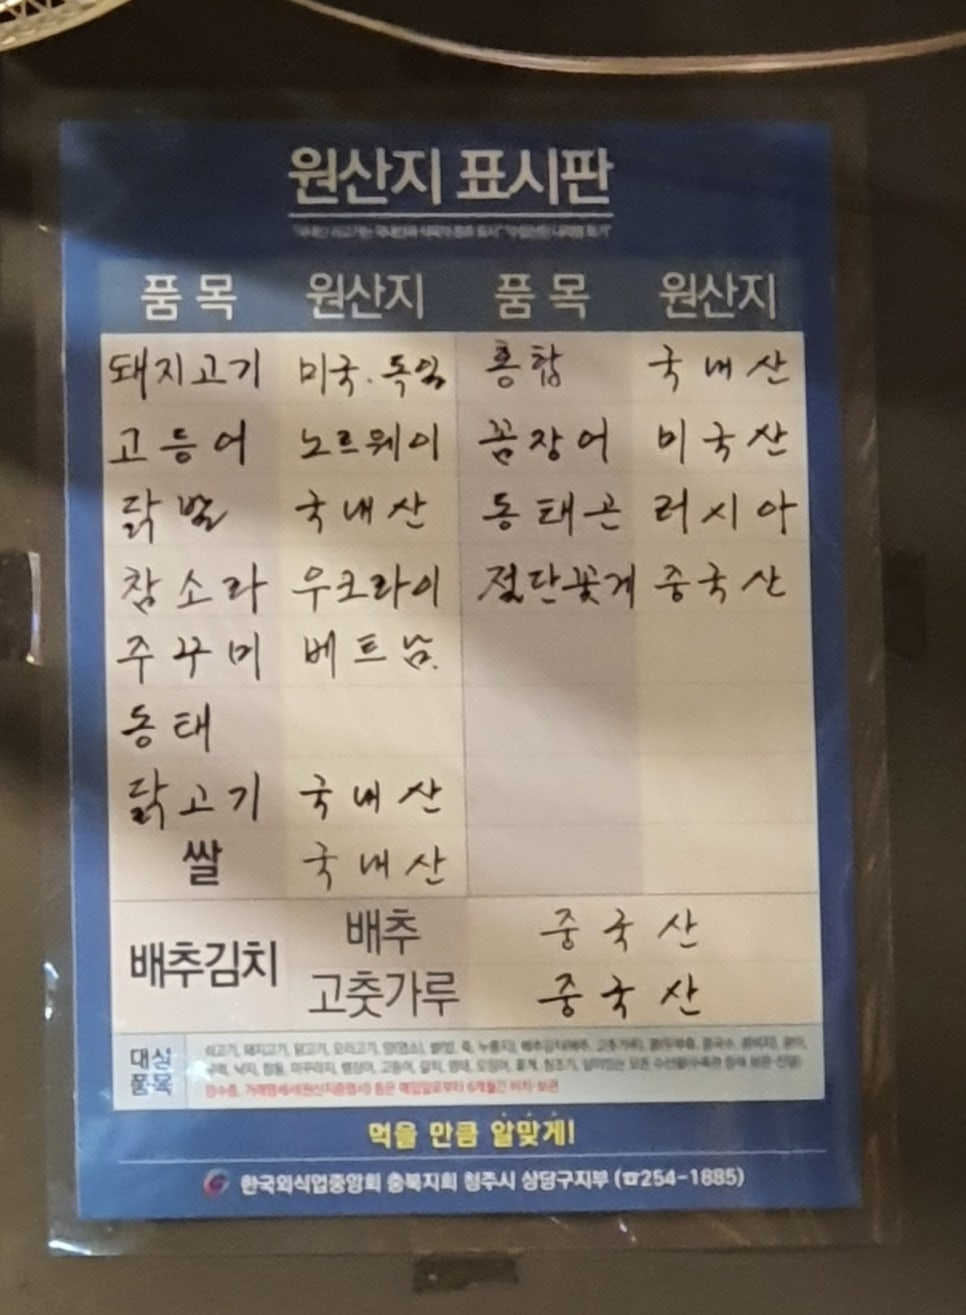 원산지 표시판
품목 원산지 품목 원산지
돼지고기 미국.독일 홍합 국내산
고등어 노르웨이 꼼장어 미국산
닭발 국내산 동태곤 러시아
참소라 우크라이 절단꽃게 중국산
주꾸미 베트남.
동태
닭고기 국내산
쌀 국내산
배추김치 배추 중국산
고춧가루 중국산
대상
품목
먹을 만큼 알맞게!
한국외식업중앙회 충북지회 청주시 상당구지부 (☎254-1885)